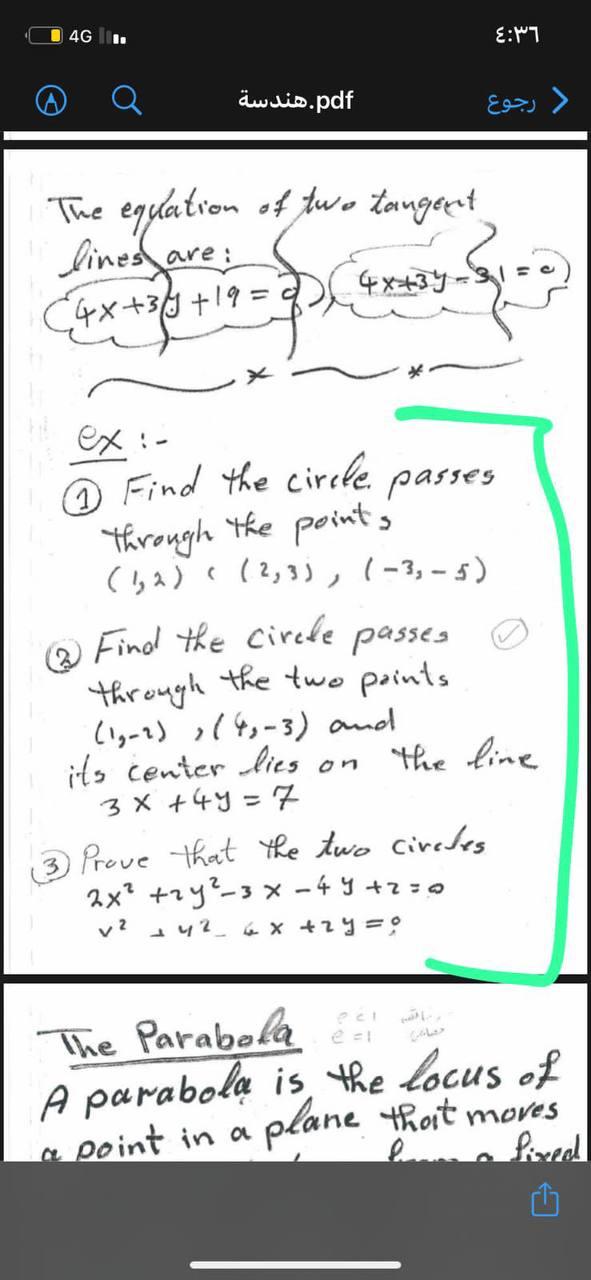 4G ٤:٣٦
هندسة.pdf رجوع
The equation of two tangent
lines are:
4x+3y+19=0), 4x+3y-31=0)
ex :-
① Find the circle passes
through the points
(1,2) ، (2,3), (-3,-5)
② Find the circle passes
through the two points
(1,-2) ,(4,-3) and
its center lies on the line
3x+4y=7
③ Prove that the two circles
2x²+2y²-3x-4y+2=0
x²+y²-4x+2y=0
The Parabola e<1
e=1
A parabola is the locus of
a point in a plane that moves
from a fixed